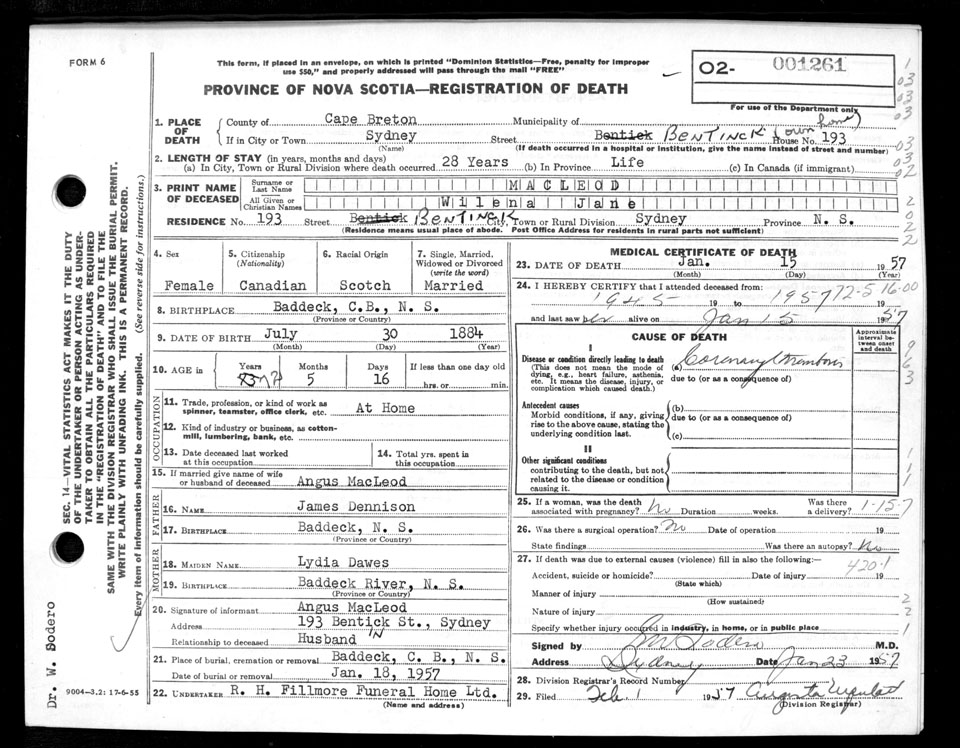 FORM 6
This form, if placed in an envelope, on which is printed "Dominion Statistics—Free, penalty for improper
use $50," and properly addressed will pass through the mail "FREE"
02- 001261
For use of the Department only
PROVINCE OF NOVA SCOTIA—REGISTRATION OF DEATH
1. PLACE OF DEATH
County of Cape Breton Municipality of
If in City or Town Sydney Street Bentick BENTINCK House No. 193
(Name) (If death occurred in a hospital or institution, give the name instead of street and number)
2. LENGTH OF STAY (in years, months and days)
(a) In City, Town or Rural Division where death occurred 28 Years (b) In Province Life (c) In Canada (if immigrant)
3. PRINT NAME OF DECEASED
Surname or Last Name MACLEOD
All Given or Christian Names Wilena Jane
RESIDENCE No. 193 Street Bentick BENTINCK City, Town or Rural Division Sydney Province N. S.
(Residence means usual place of abode. Post Office Address for residents in rural parts not sufficient)
4. Sex
Female
5. Citizenship
(Nationality)
Canadian
6. Racial Origin
Scotch
7. Single, Married,
Widowed or Divorced
(write the word)
Married
8. BIRTHPLACE Baddeck, C.B., N. S.
(Province or Country)
9. DATE OF BIRTH July 30 1884
(Month) (Day) (Year)
10. AGE in
Years Months Days If less than one day old
72 5 16 hrs. or min.
OCCUPATION
11. Trade, profession, or kind of work as
spinner, teamster, office clerk, etc. At Home
12. Kind of industry or business, as cotton-
mill, lumbering, bank, etc.
13. Date deceased last worked
at this occupation
14. Total yrs. spent in
this occupation
15. If married give name of wife
or husband of deceased Angus MacLeod
FATHER
16. NAME James Dennison
17. BIRTHPLACE Baddeck, N. S.
(Province or Country)
MOTHER
18. MAIDEN NAME Lydia Dawes
19. BIRTHPLACE Baddeck River, N. S.
(Province or Country)
20. Signature of informant Angus MacLeod
Address 193 Bentick St., Sydney
IN
Relationship to deceased Husband
21. Place of burial, cremation or removal Baddeck, C. B., N. S.
Date of burial or removal Jan. 18, 1957
22. UNDERTAKER R. H. Fillmore Funeral Home Ltd.
(Name and address)
MEDICAL CERTIFICATE OF DEATH
23. DATE OF DEATH Jan. 15 1957
(Month) (Day) (Year)
24. I HEREBY CERTIFY that I attended deceased from:
1945 19 to 1957 19
72-5-16-00
and last saw her alive on Jan 15 1957
CAUSE OF DEATH
Approximate
interval be-
tween onset
and death
I
Disease or condition directly leading to death
(This does not mean the mode of
dying, e.g., heart failure, asthenia,
etc. It means the disease, injury, or
complication which caused death.)
(a) Coronary Thrombosis
due to (or as a consequence of)
Antecedent causes
Morbid conditions, if any, giving
rise to the above cause, stating the
underlying condition last.
(b)
due to (or as a consequence of)
(c)
II
Other significant conditions
contributing to the death, but not
related to the disease or condition
causing it.
25. If a woman, was the death
associated with pregnancy? No Duration weeks. Was there
a delivery?
1-15-7
26. Was there a surgical operation? No Date of operation 19
State findings Was there an autopsy? No
27. If death was due to external causes (violence) fill in also the following:—
420.1
Accident, suicide or homicide? Date of injury 19
(State which)
Manner of injury
(How sustained)
Nature of injury
Specify whether injury occurred in industry, in home, or in public place
Signed by M.D.
Address Sydney Date Jan 23 1957
28. Division Registrar's Record Number
29. Filed Feb 1 1957
(Division Registrar)
SEC. 14—VITAL STATISTICS ACT MAKES IT THE DUTY
OF THE UNDERTAKER OR PERSON ACTING AS UNDER-
TAKER TO OBTAIN ALL THE PARTICULARS REQUIRED
IN THE "REGISTRATION OF DEATH" AND TO FILE THE
SAME WITH THE DIVISION REGISTRAR WHO SHALL ISSUE THE BURIAL PERMIT.
WRITE PLAINLY WITH UNFADING INK. THIS IS A PERMANENT RECORD.
Every item of information should be carefully supplied. (See reverse side for instructions.)
Dr. W. Sodero
9004-3.2: 17-6-55